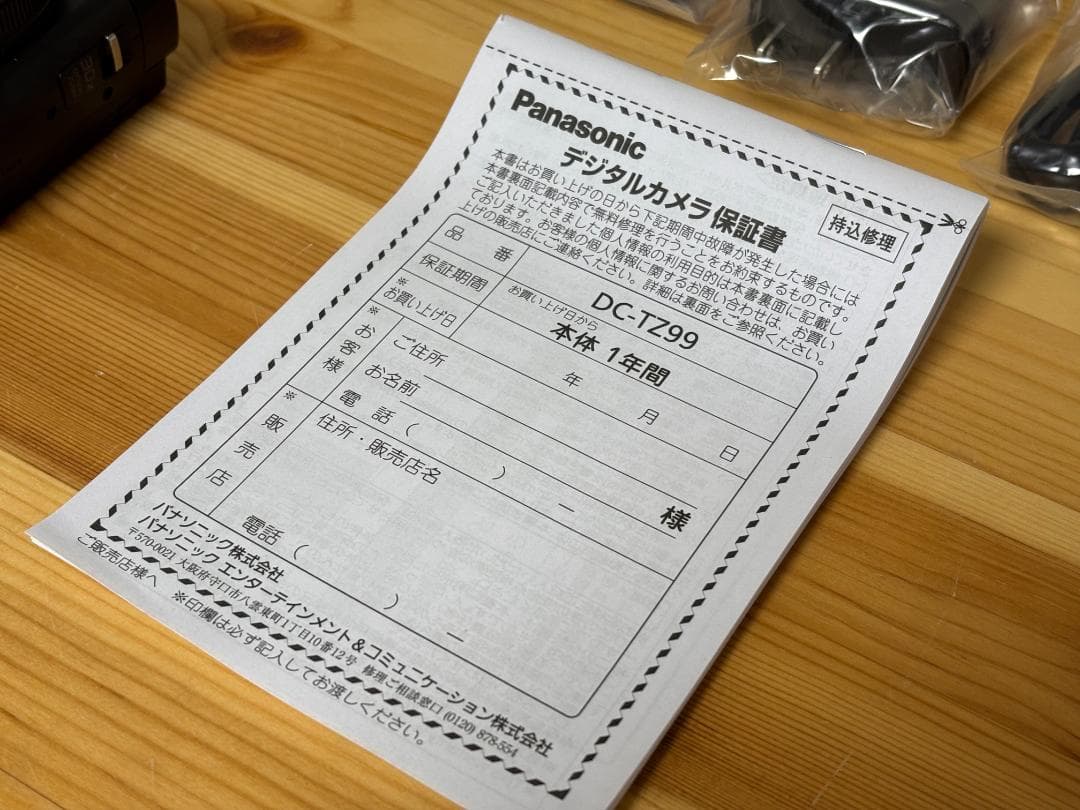 Panasonic
デジタルカメラ 保証書
持込修理
本書はお買い上げの日から下記期間中故障が発生した場合には
本書裏面記載内容で無料修理を行うことをお約束するものです。
ご記入いただきました個人情報の利用目的は本書裏面に記載し
ております。お客様の個人情報に関するお問い合わせは、お買い
上げの販売店にご連絡ください。詳細は裏面をご参照ください。
品 番
DC-TZ99
保証期間
お買い上げ日から
本体 1年間
※
お買い上げ日
年 月 日
※
お客様
ご住所
お名前
様
電 話 ( ) ー
※
販売店
住所・販売店名
電話 ( ) ー
パナソニック株式会社
パナソニック エンターテインメント&コミュニケーション株式会社
〒570-0021 大阪府守口市八雲東町1丁目10番12号 修理ご相談窓口 (0120) 878-554
ご販売店様へ ※印欄は必ず記入してお渡しください。